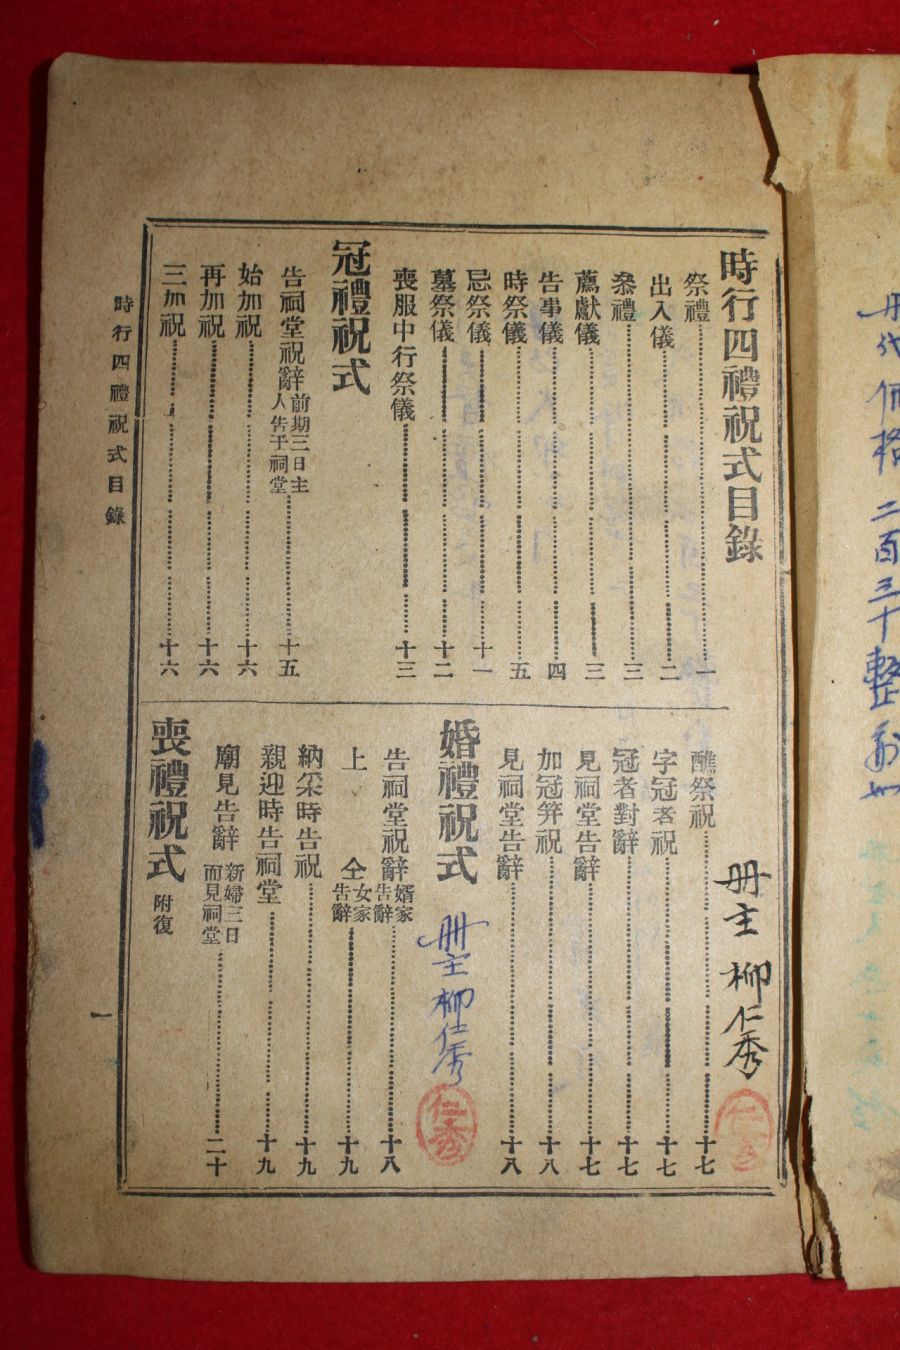 時行四禮祝式目錄
祭禮 一
出入儀 二
叅禮 三
薦獻儀 三
告事儀 四
時祭儀 五
忌祭儀 十一
墓祭儀 十二
喪服中行祭儀 十三
冠禮祝式
告祠堂祝辭 前期三日主人告于祠堂 十五
始加祝 十六
再加祝 十六
三加祝 十六
醮祭祝 十七
字冠者祝 十七
冠者對辭 十七
見祠堂告辭 十七
加冠笄祝 十八
見祠堂告辭 十八
婚禮祝式
告祠堂祝辭 婿家告辭 十八
上仝 女家告辭 十九
納采時告祝 十九
親迎時告祠堂 十九
廟見告辭 新婦三日而見祠堂 二十
喪禮祝式 附復
時行四禮祝式目錄
一
冊主 柳仁秀
仁秀
冊主 柳仁秀
仁秀
冊代價格 二百三十整